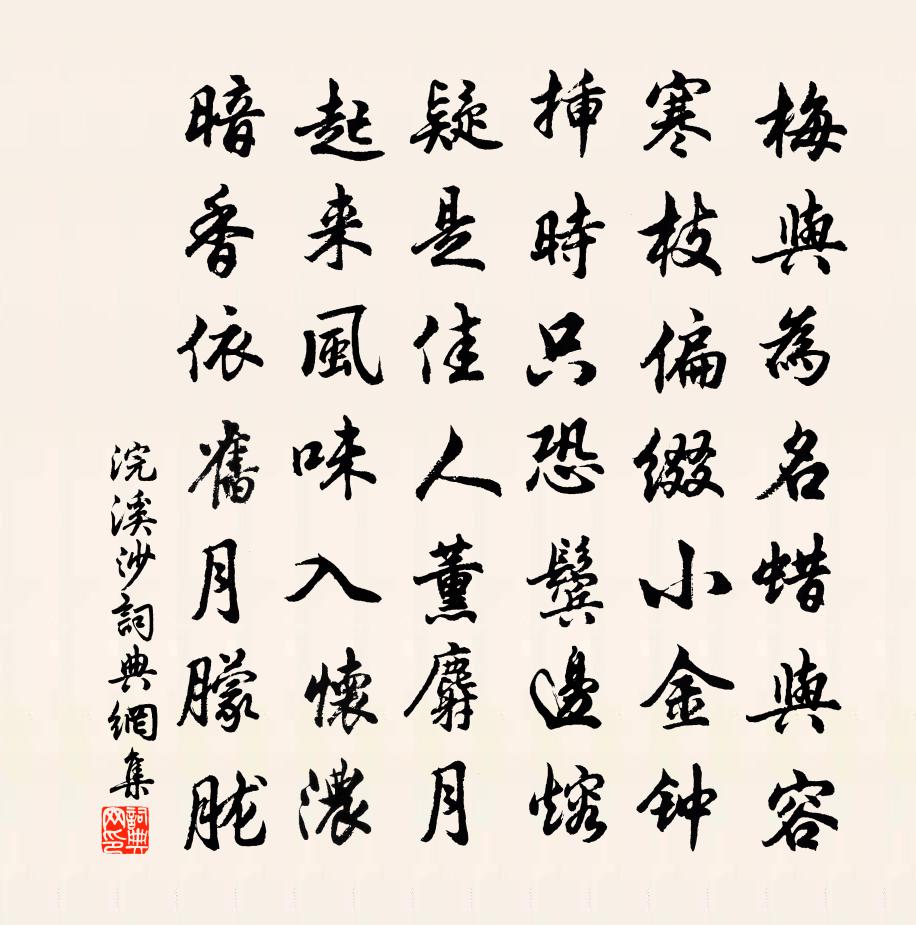 梅與為名蜡與容
寒枝偏缀小金钟
揷時只恐鬓邊熔
疑是佳人薰麝月
起来風味入懷濃
暗香依舊月朦胧
浣溪沙詞典網集
詞典网印